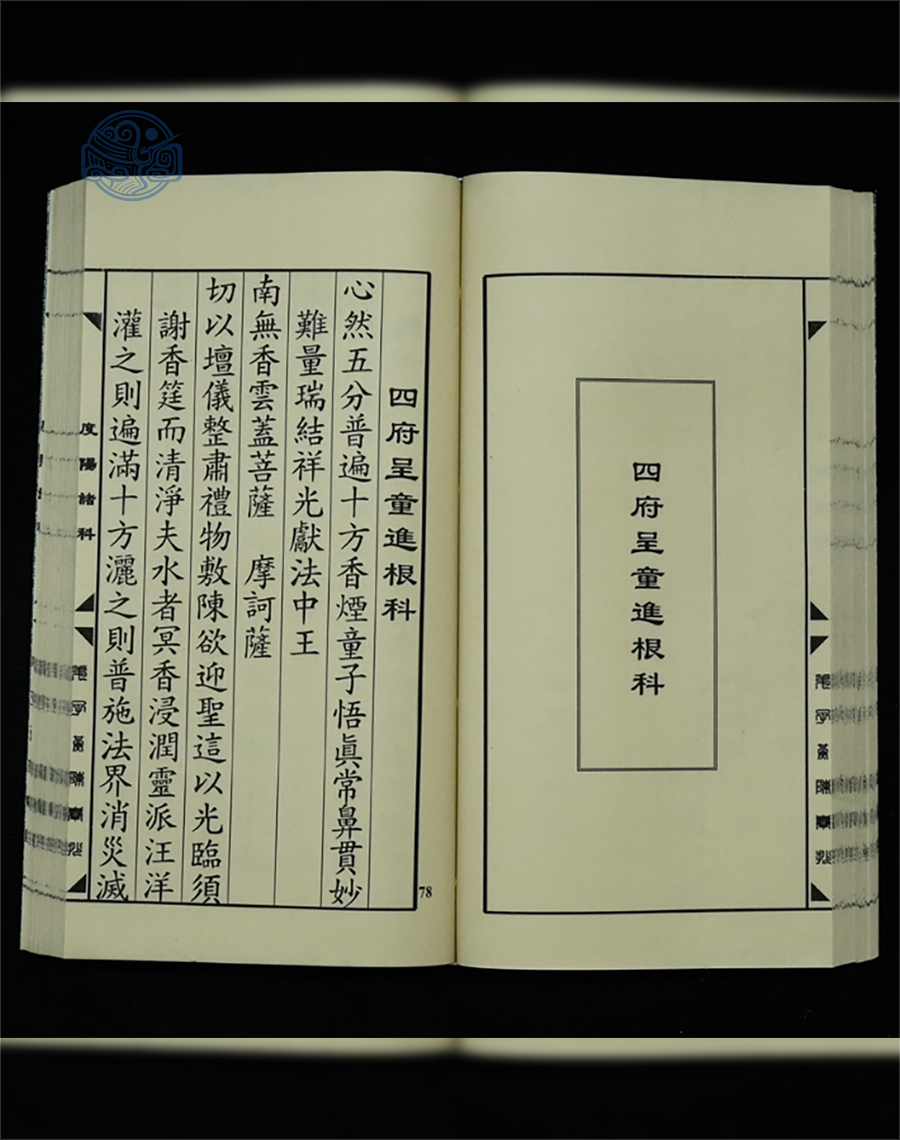 四府呈童進根科
四府呈童進根科
心然五分普遍十方香煙童子悟眞常鼻貫妙
難量瑞結祥光獻法中王
南無香雲蓋菩薩　摩訶薩
切以壇儀整肅禮物敷陳欲迎聖這以光臨須
謝香筵而清淨夫水者冥香浸潤靈派汪洋
灌之則遍滿十方灑之則普施法界消災滅
78
度陽諸科